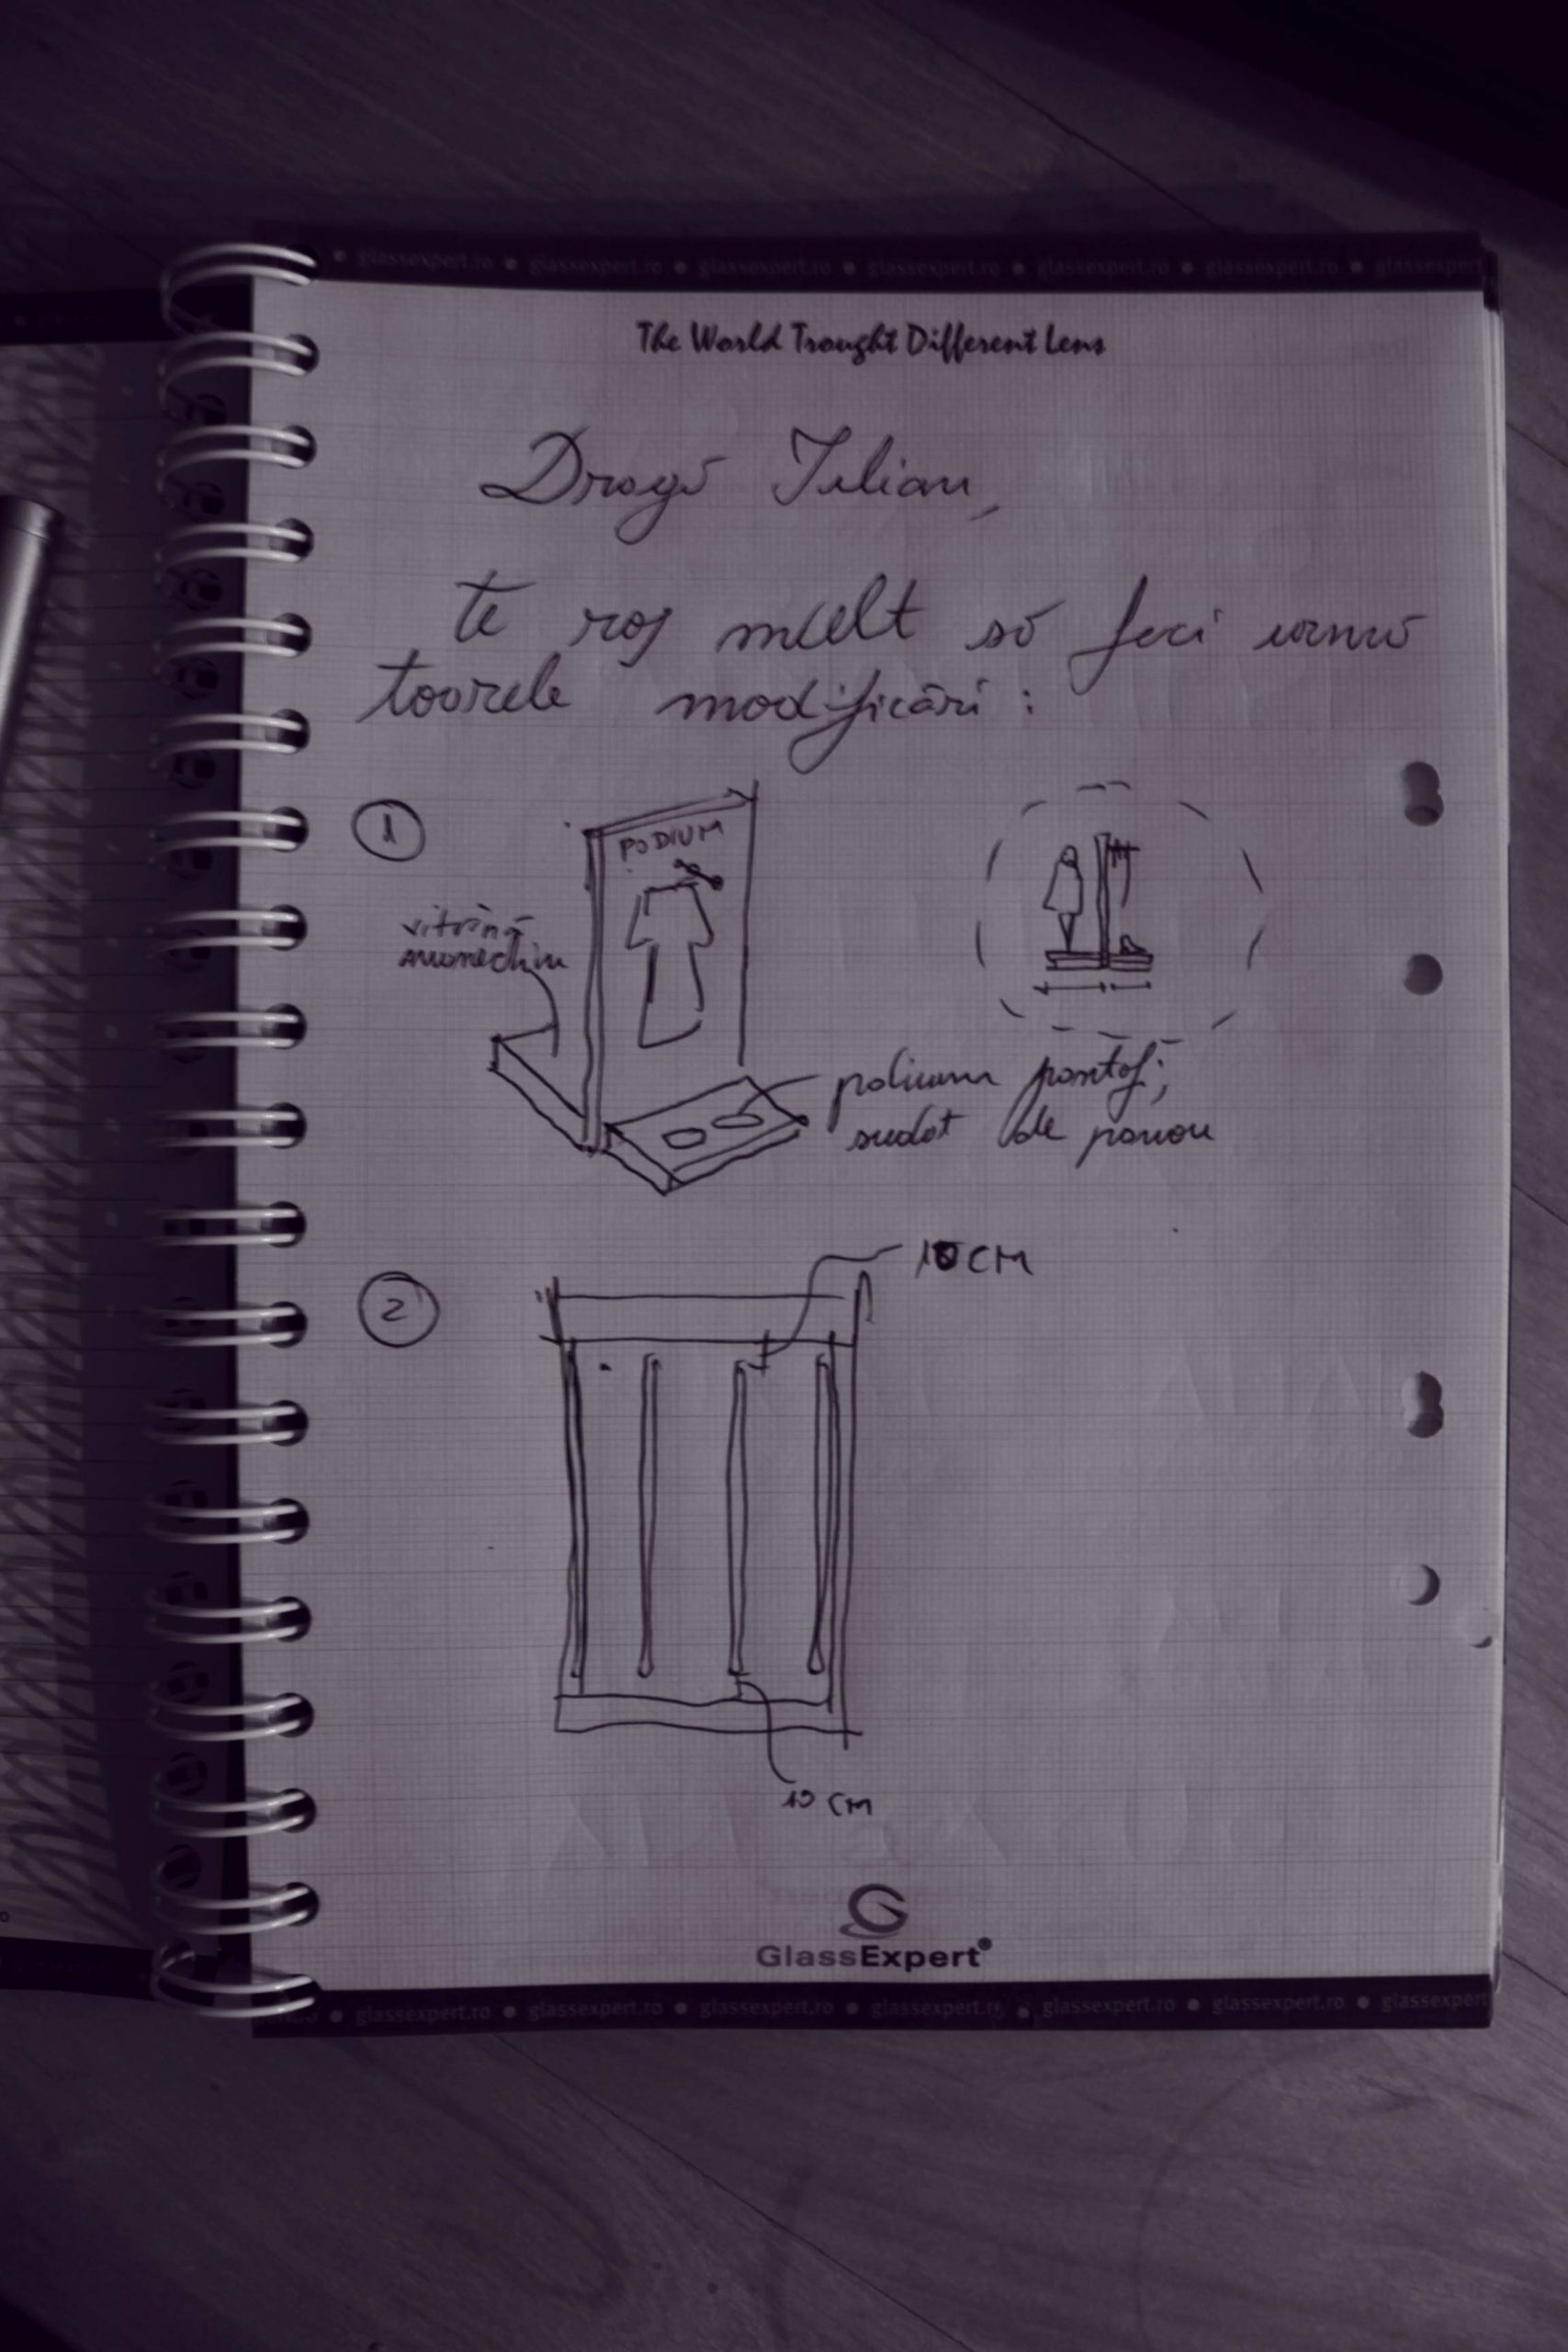 glassexpert.ro • glassexpert.ro • glassexpert.ro • glassexpert.ro • glassexpert.ro • glassexpert.ro • glassexpert
The World Trought Different Lens
Dragă Iulian,
te rog mult să faci urmă
toarele modificări :
1
PODIUM
vitrină
manechin
podium pantofi,
sudat de panou
2
10 CM
10 CM
GlassExpert®
glassexpert.ro • glassexpert.ro • glassexpert.ro • glassexpert.ro • glassexpert.ro • glassexpert.ro • glassexpert